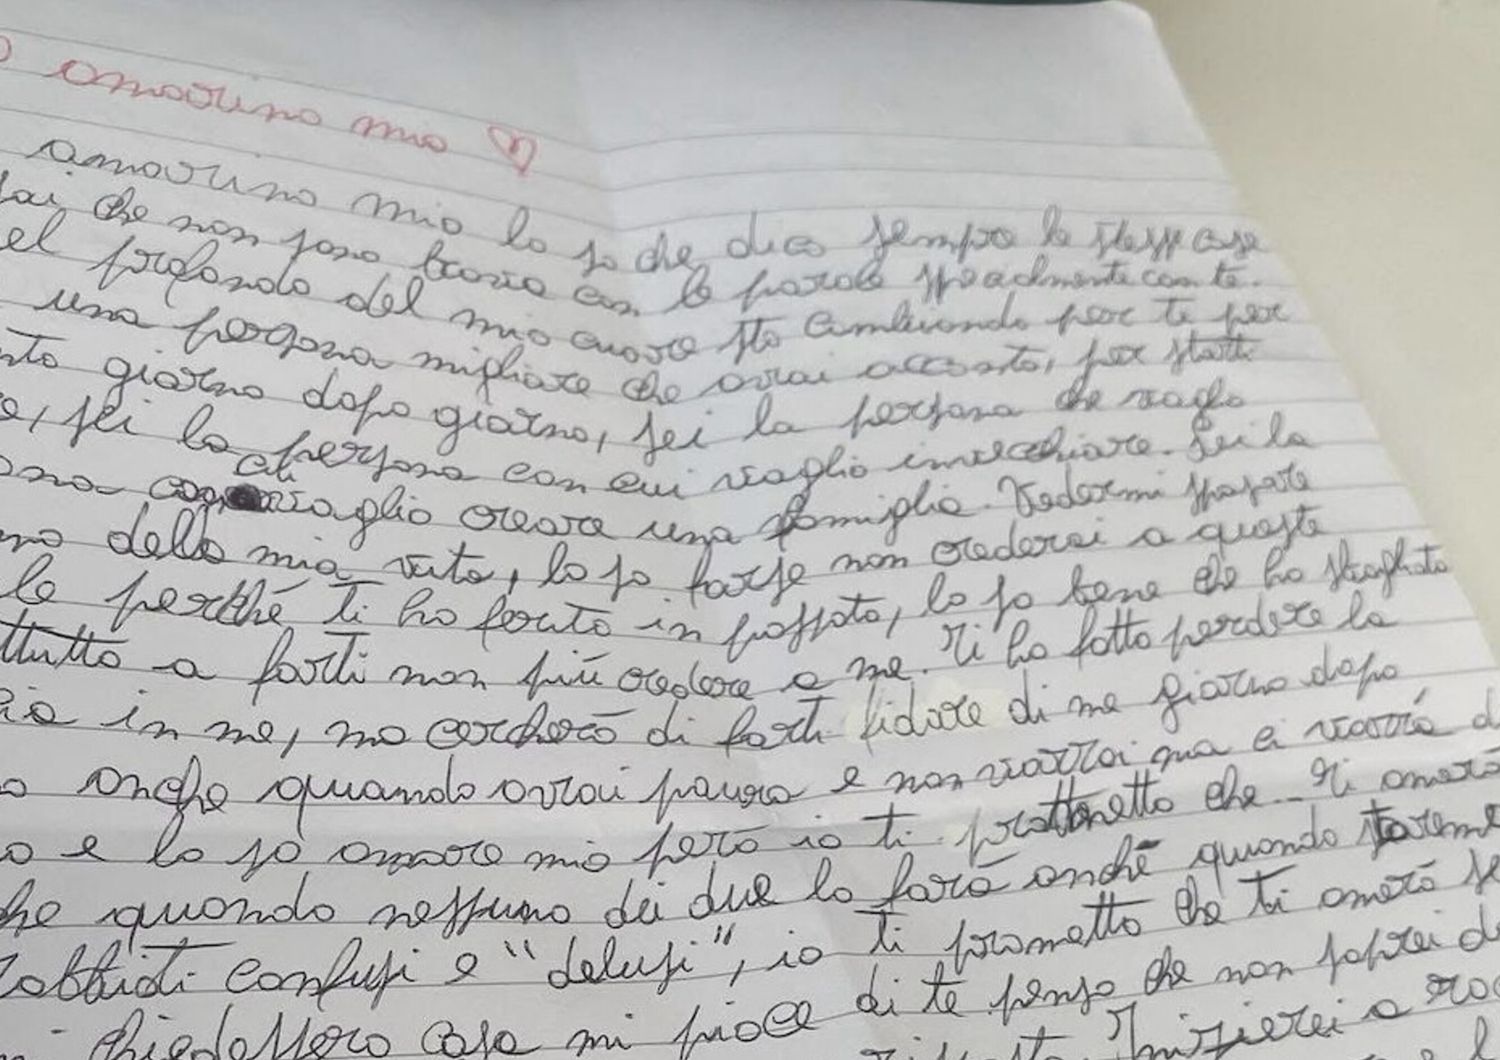 amorino mio ♡
amorino mio lo so che dico sempre le stesse cose
sai che non sono brava con le parole specialmente con te.
el profondo del mio cuore sto cambiando per te per
una persona migliore che avrai accanto, per starti
nto giorno dopo giorno, sei la persona che voglio
e, sei la persona con cui voglio invecchiare. Sei la
ona con cui voglio creare una famiglia. Vedermi sposare
no della mia vita, lo so forse non crederai a queste
le perché ti ho ferito in passato, lo so bene che ho sbagliato
ttutto a farti non più credere a me. Ti ho fatto perdere la
ia in me, ma cercherò di farti fidare di me giorno dopo
o anche quando avrai paura e non vorrai ma ci vorrà d
o e lo so amore mio però io ti prometto che.. Ti amerò
he quando nessuno dei due lo farà anche quando saremo
rabbiati confusi e "delusi", io ti prometto che ti amerò se
i chiedessero cosa mi piace di te penso che non saprei d
Inizierei a